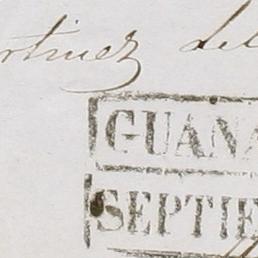 rtinez del
GUANA
SEPTIE